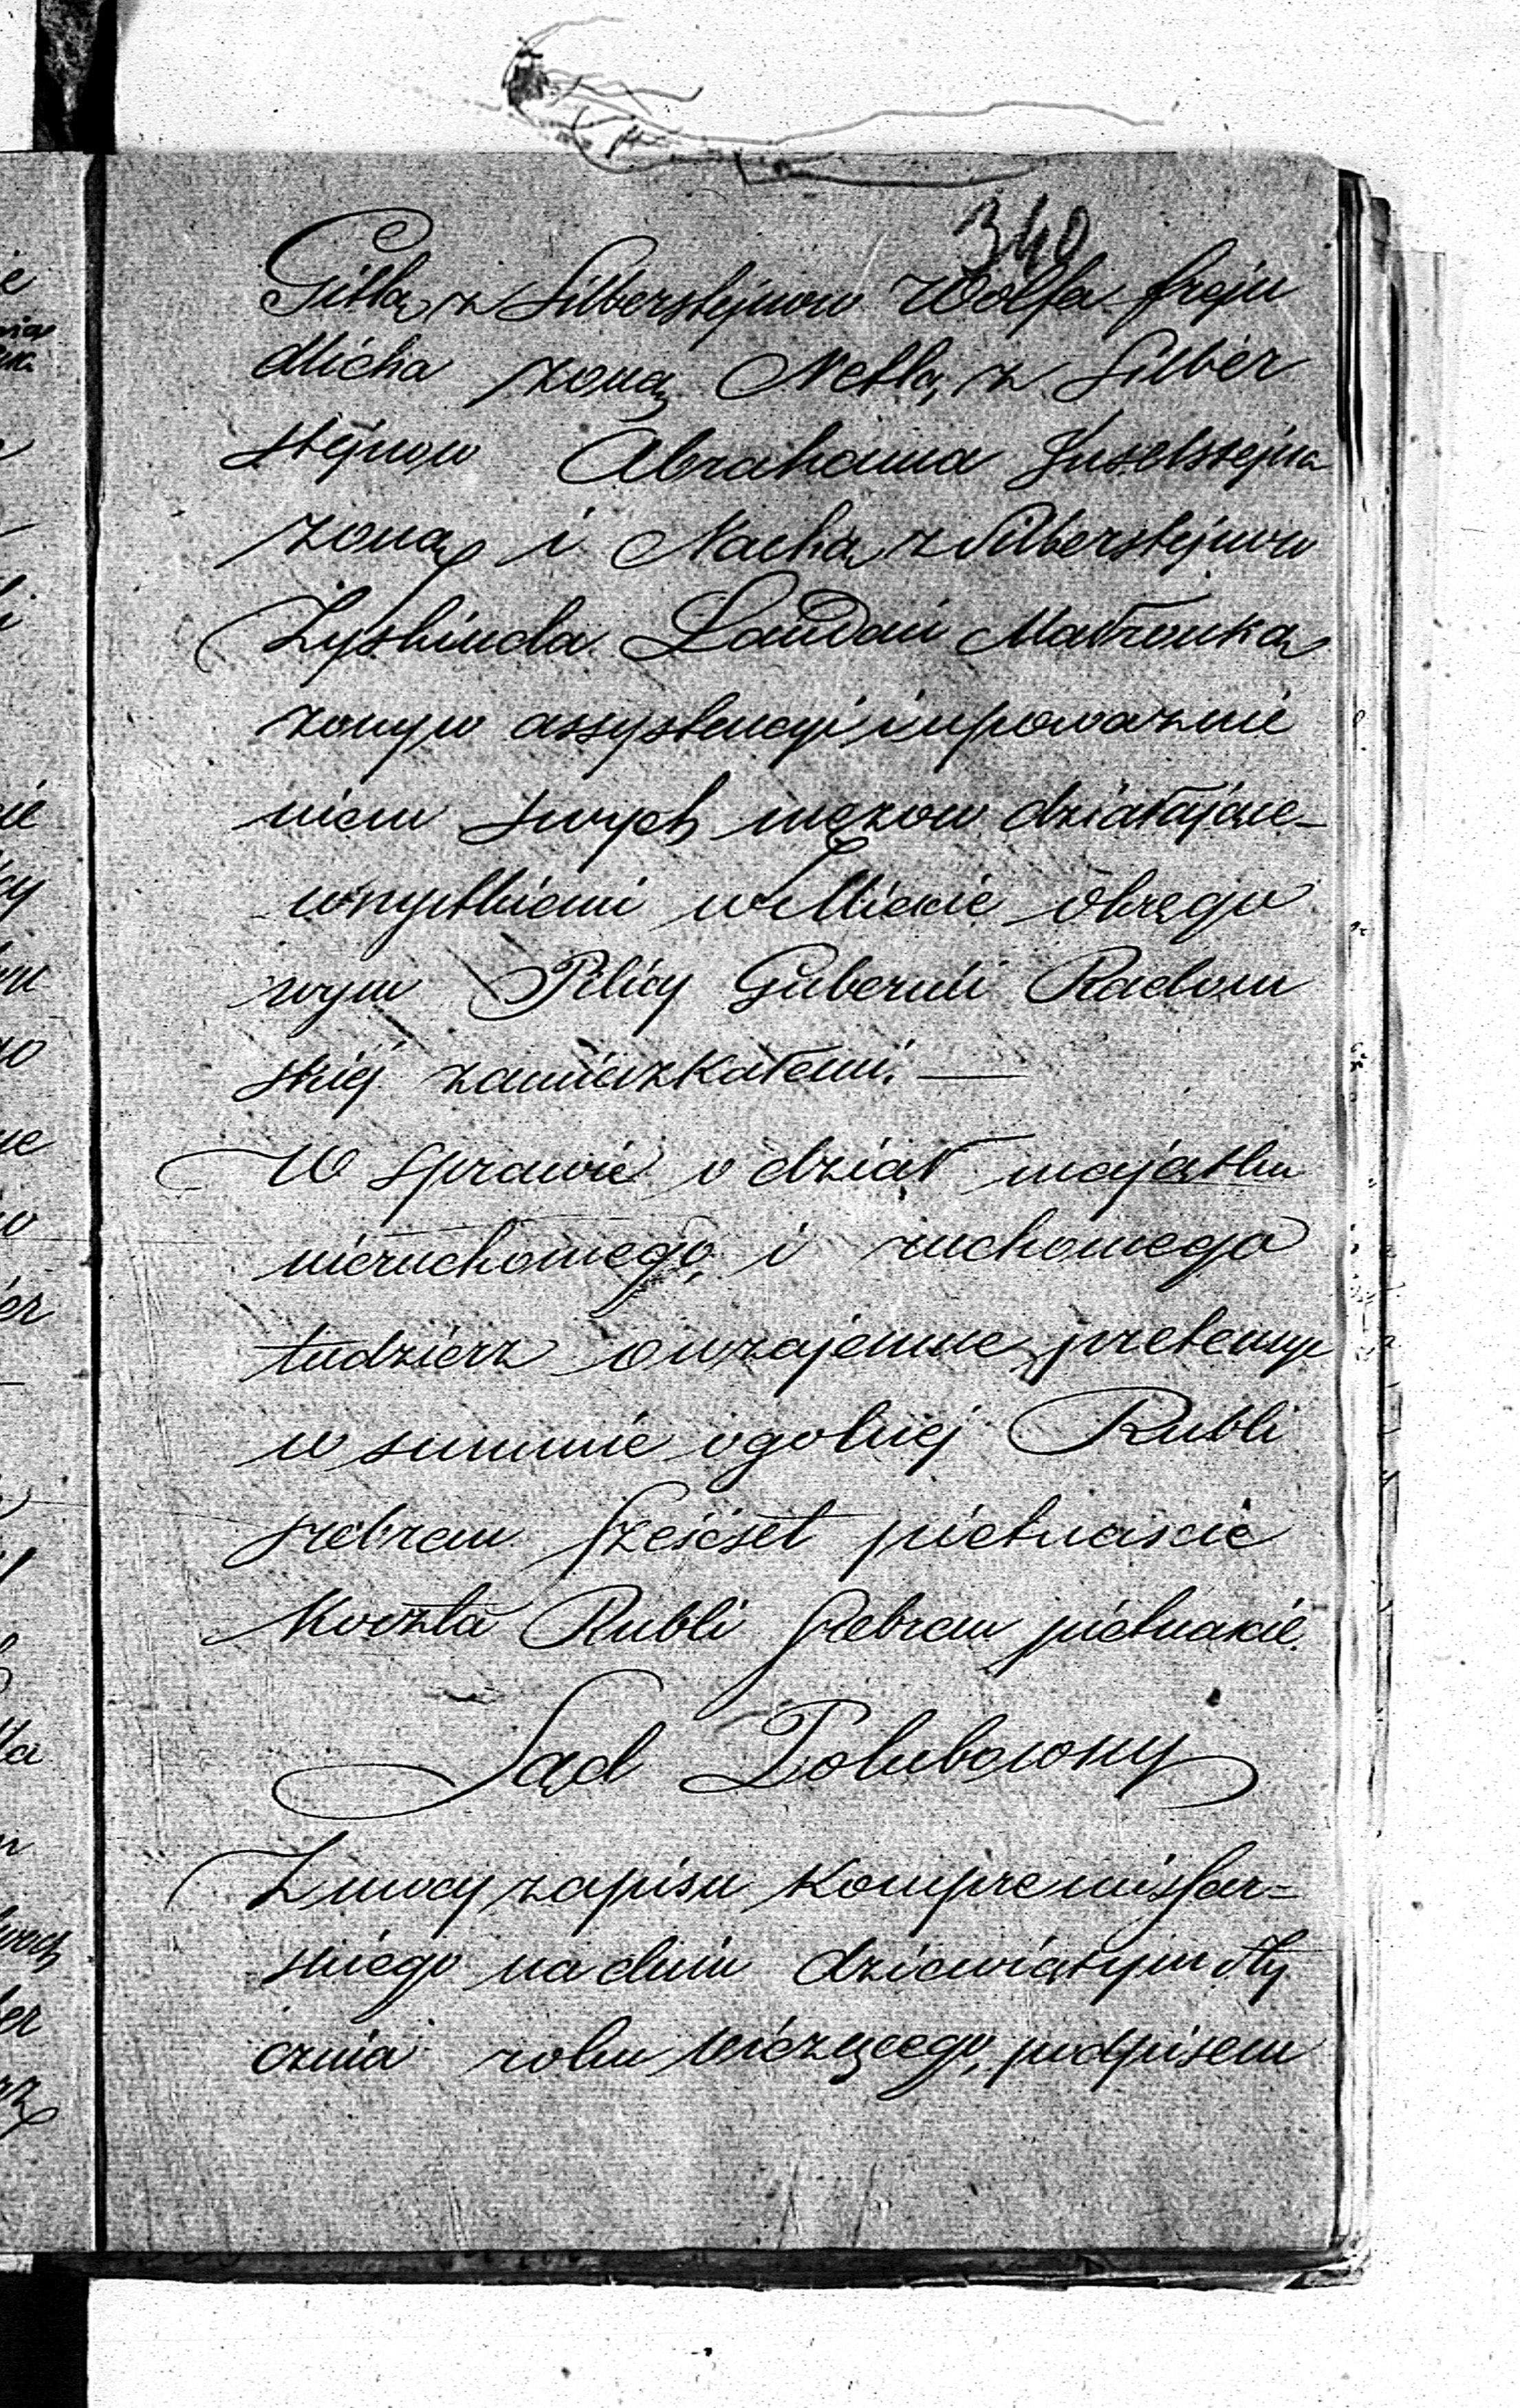 340
Gitlą z Silberstejnow Wolfa frejn
dlicha zoną Netlą z Silber
stejnow Abrahama Juselstejna
zoną i Nachą z Silberstejnow
Zyskinda Landau Małzonką
zony w assystencyi i upowaznie
niem swych męzow działające
wszystkiemi w Miescie okręgo
wym Pilicy Gubernii Radom
skiej zamieszkałemi. —
W sprawie o dział majątku
nieruchomego i ruchomego
tudzierz o wzajemne pretensye
w summie ogolnej Rubli
srebrem sześcset pietnascie
Koszta Rubli srebrem pietnascie.
Sąd Polubowny
Z mocy zapisu Kompromissar=
skiego na dniu dziewiątym Sty
cznia roku bieżącego, podpisem